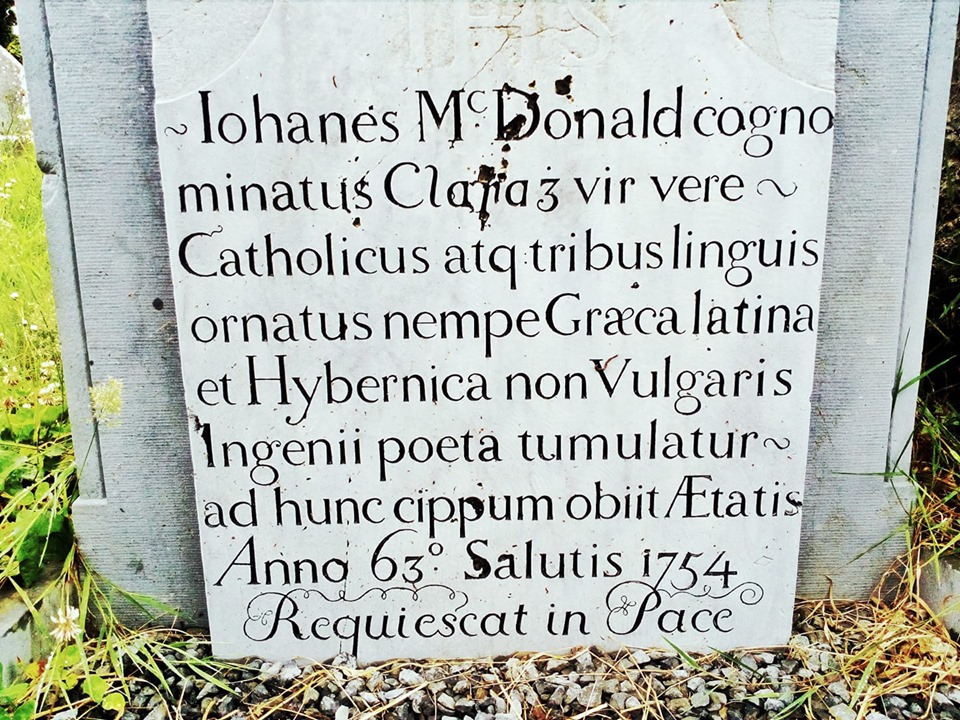 IHS
~ Iohanes Mc. Donald cogno
minatus Claraʒ vir vere ~
Catholicus atq tribus linguis
ornatus nempe Græca latina
et Hybernica non Vulgaris
Ingenii poeta tumulatur ~
ad hunc cippum obiit Ætatis
Anno 63° Salutis 1754
Requiescat in Pace